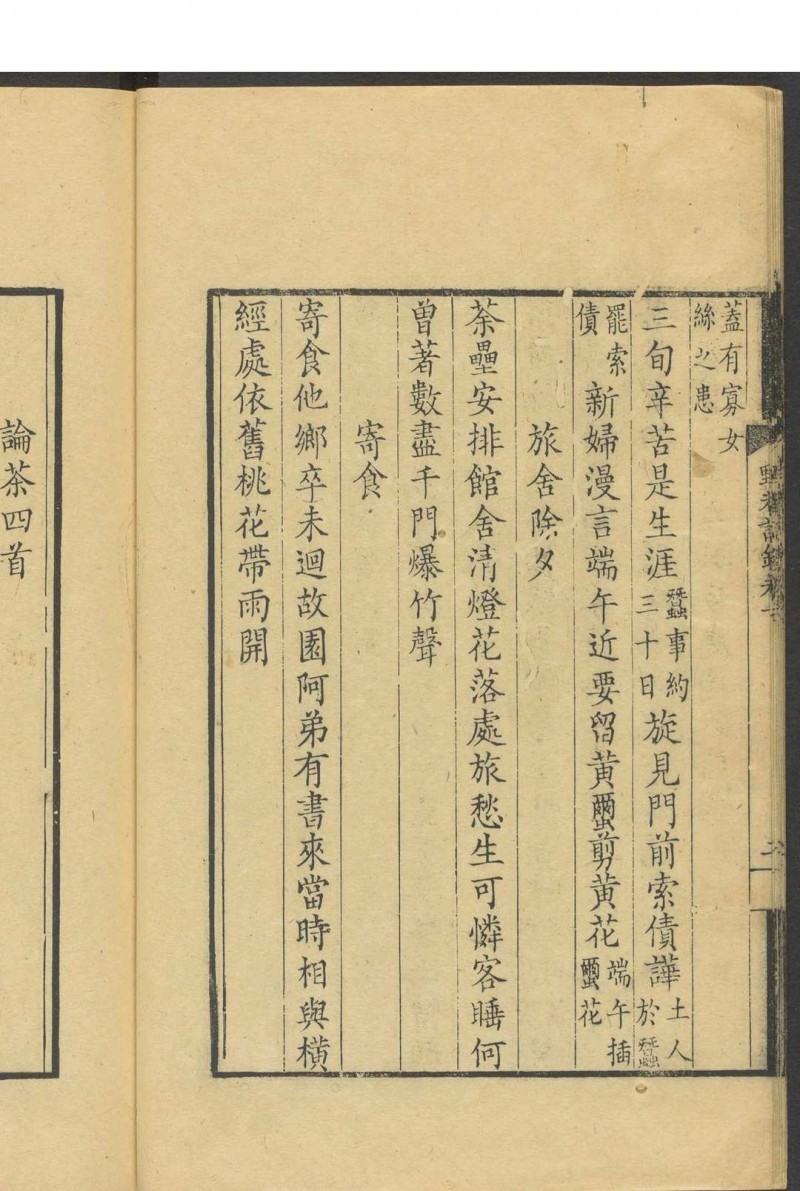 蓋有寡女絲之患
三旬辛苦是生涯蠶事約三十日旋見門前索債譁土人於蠶
罷索債新婦漫言端午近要留黃蠒剪黃花端午插蠒花
旅舍除夕
荼壘安排館舍清燈花落處旅愁生可憐客睡何
曾著數盡千門爆竹聲
寄食
寄食他鄉卒未迴故園阿弟有書來當時相與橫
經處依舊桃花帶雨開
論茶四首